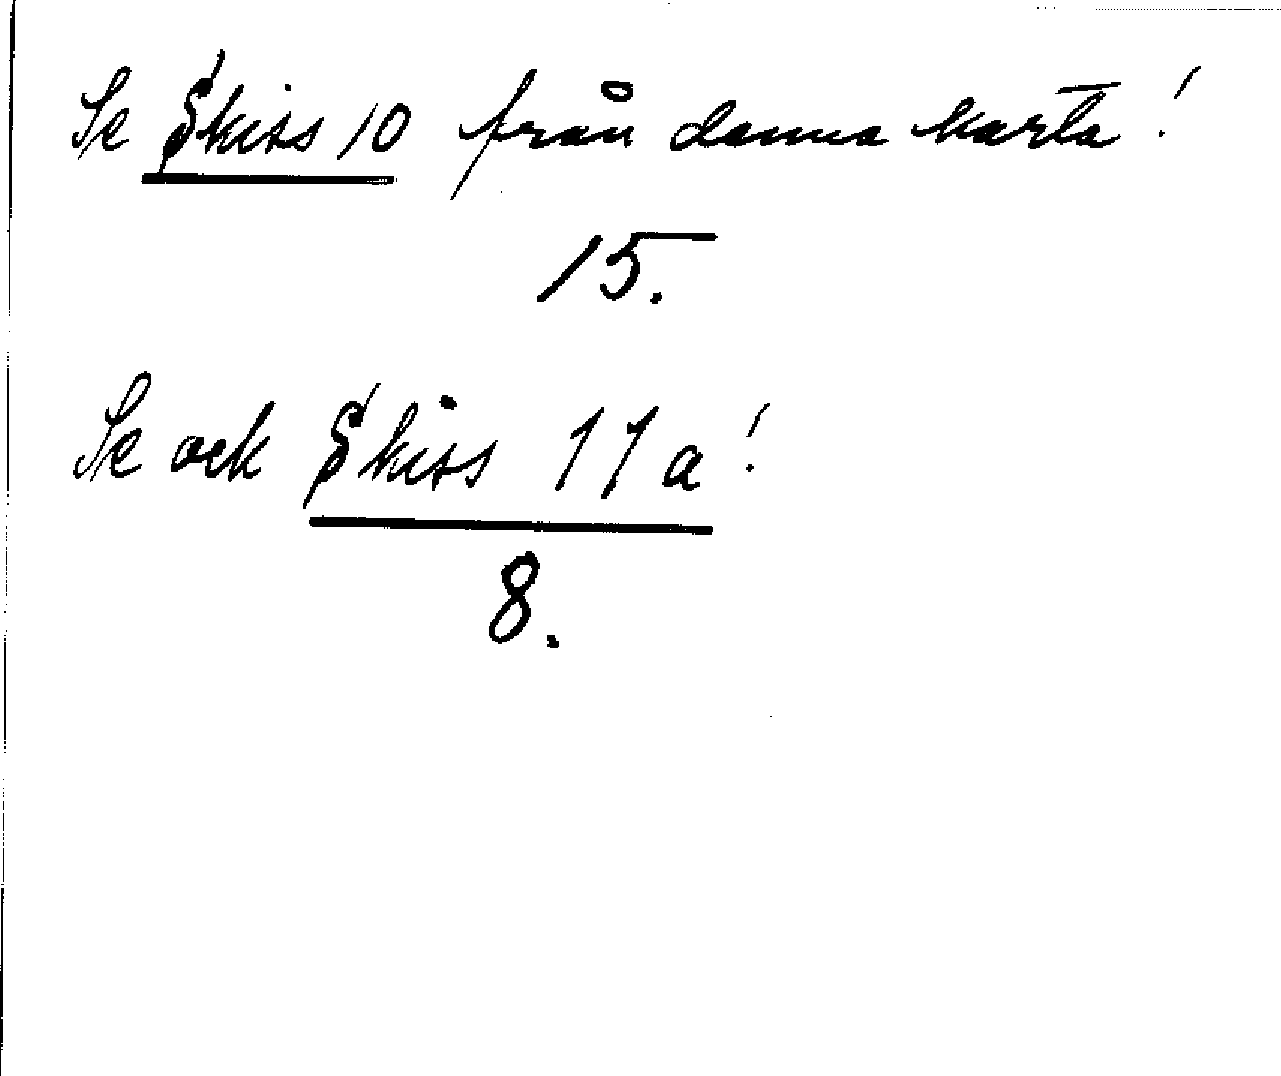 Se Skiss 10 från denna karta!
15.
Se ock Skiss 11 a!
8.